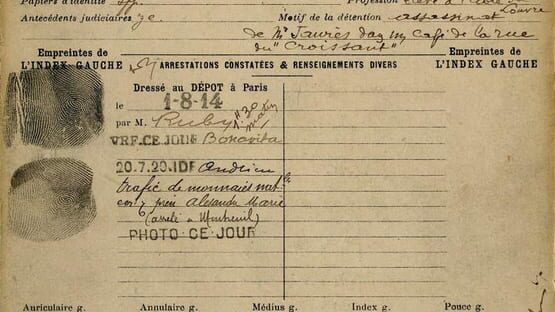 Papiers d'identité Profession Elève à l'Ecole du
Louvre
Antécédents judiciaires Motif de la détention assassinat
de Mr Jaurès dans un Café de la rue
du "Croissant"
Empreintes de
L'INDEX GAUCHE
ARRESTATIONS CONSTATÉES & RENSEIGNEMENTS DIVERS
Empreintes de
L'INDEX GAUCHE
Dressé au DÉPOT à Paris
le 1-8-14
par M. Ruby
VRF.CE JOUR Bonavita
20.7.20.IDF Andrieu
trafic de monnaies
prén Alexandre Marie
(arrêté à Montreuil)
PHOTO-CE JOUR
Auriculaire g. Annulaire g. Médius g. Index g. Pouce g.